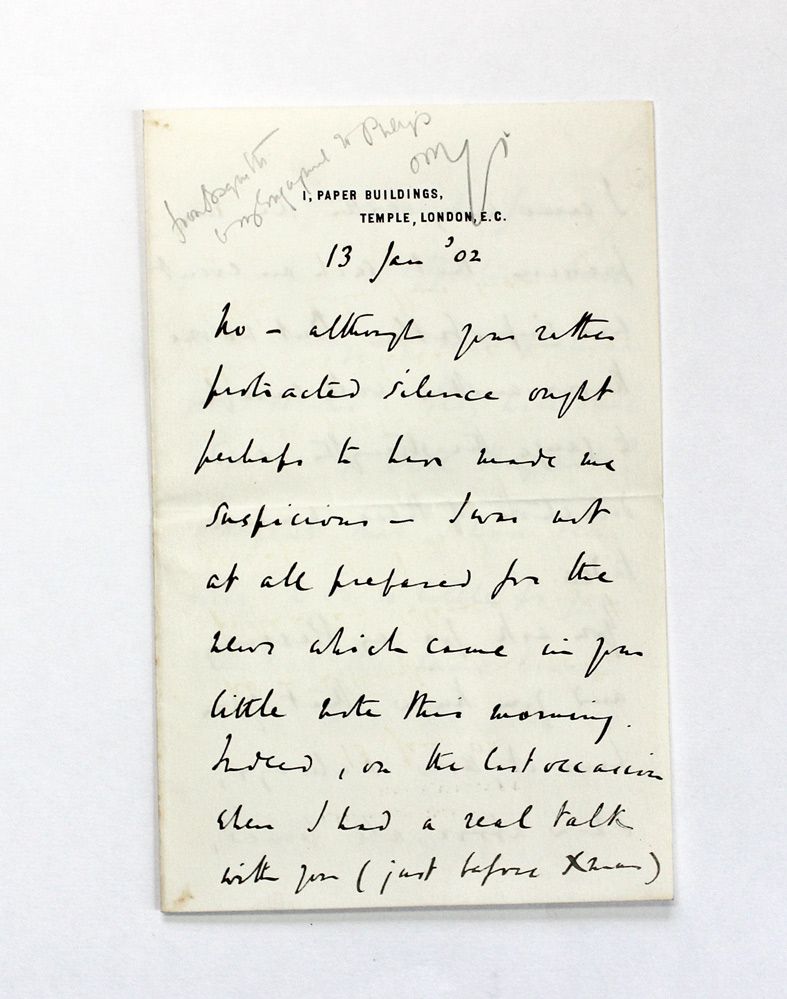 from Asquith
on my Engagement to Philip
1, PAPER BUILDINGS,
TEMPLE, LONDON, E.C.
13 Jan '02
No – although your rather
protracted silence ought
perhaps to have made me
suspicious – I was not
at all prepared for the
news which came in your
little note this morning.
Indeed, on the last occasion
when I had a real talk
with you (just before Xmas)